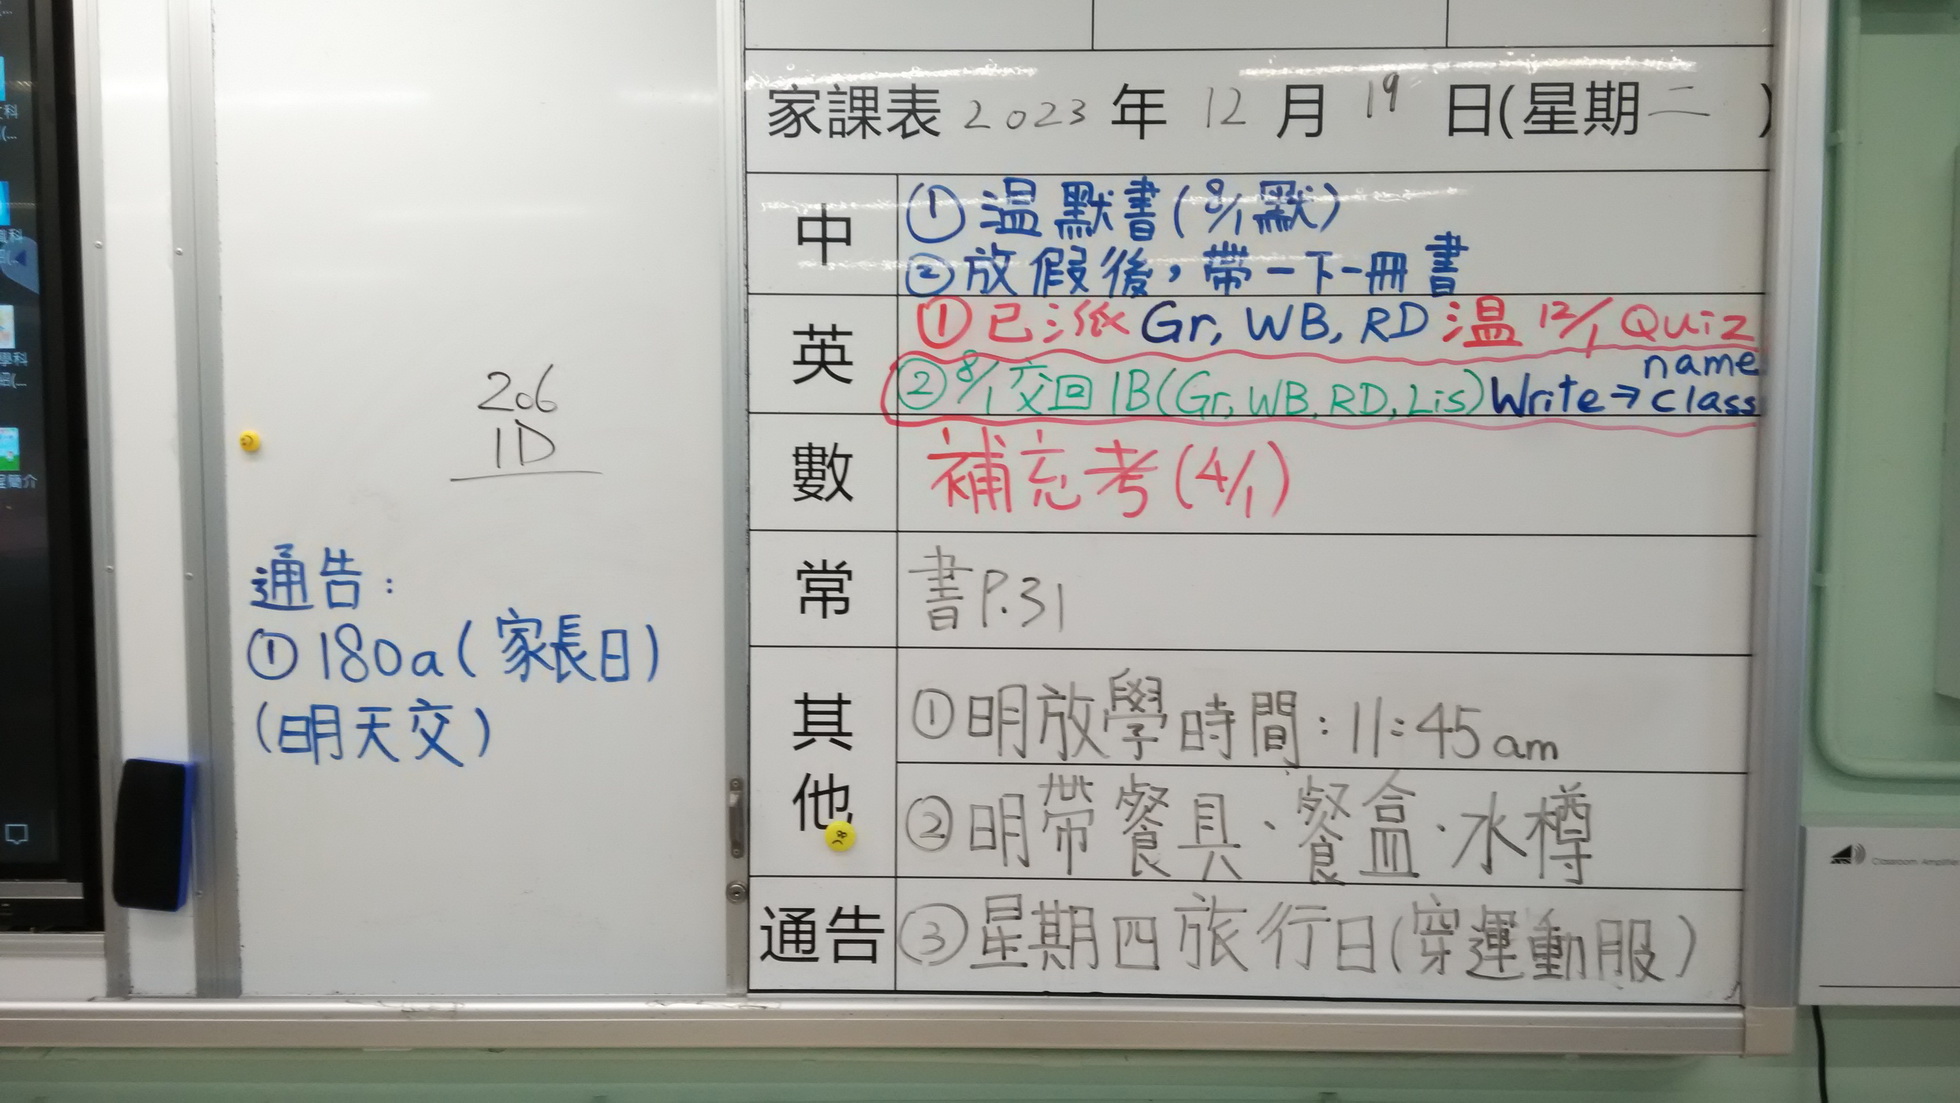 206
1D
通告：
① 180a（家長日）
（明天交）
家課表 2023 年 12 月 19 日(星期二 )
中
① 溫默書(8/1默)
② 放假後，帶一下一冊書
英
① 已派 Gr, WB, RD 溫 12/1 Quiz
② 8/1 交回 1B(Gr, WB, RD, Lis) Write → name
class
數
補充考(4/1)
常
書P.31
其他
① 明放學時間：11:45am
② 明帶餐具、餐盒、水樽
通告
③ 星期四旅行日(穿運動服)
Classroom Amplifier